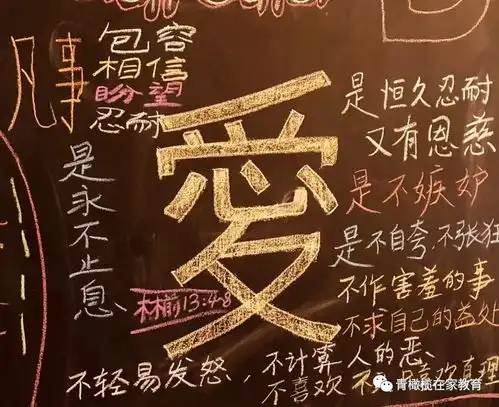 愛
是恒久忍耐
又有恩慈
是不嫉妒
是不自夸,不张狂
不作害羞的事
不求自己的益处
不轻易发怒,不计算人的恶、
不喜欢不 喜欢真理
凡事
包容
相信
盼望
忍耐
是永不止息
林前13:4-8
青橄榄在家教育